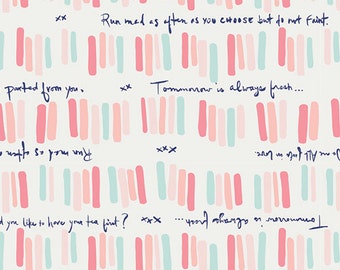 xx Run mad as often as you CHOOSE but do not faint.
parted from you. xx Tommorrow is always fresh...
Run mad as often xxx We are All fools in love.
d you like to have your tea first? xxx Tommorrow is always fresh...